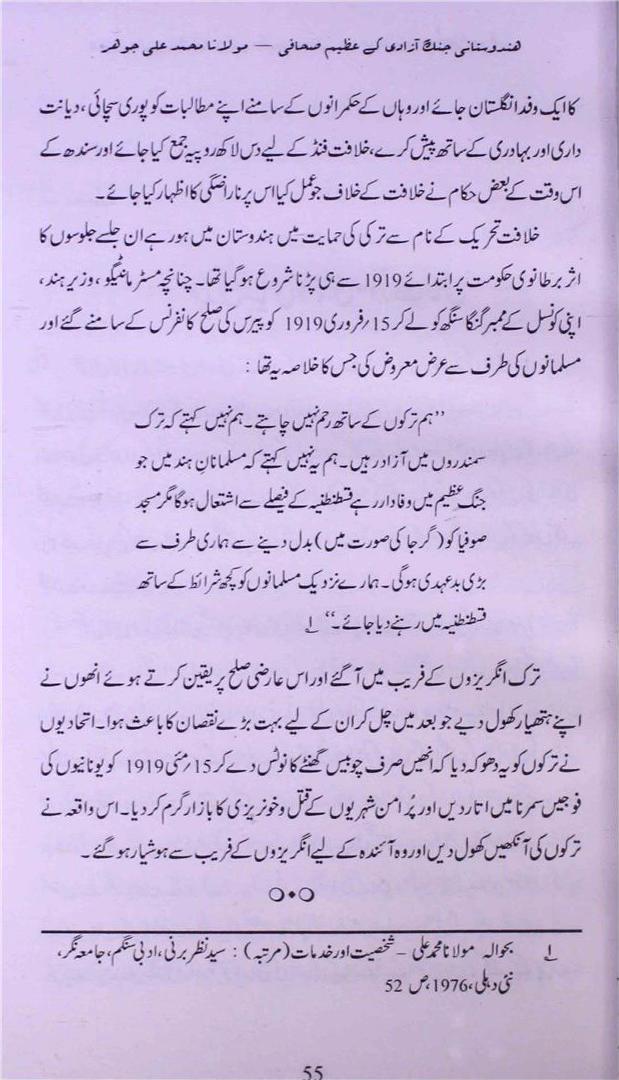 ہندوستانی جنگ آزادی کے عظیم صحافی — مولانا محمد علی جوہر
کا ایک وفد انگلستان جائے اور وہاں کے حکمرانوں کے سامنے اپنے مطالبات کو پوری سچائی، دیانت
داری اور بہادری کے ساتھ پیش کرے، خلافت فنڈ کے لیے دس لاکھ روپیہ جمع کیا جائے اور سندھ کے
اس وقت کے بعض حکام نے خلافت کے خلاف جو عمل کیا اس پر ناراضگی کا اظہار کیا جائے۔
خلافت تحریک کے نام سے ترکی کی حمایت میں ہندوستان میں ہو رہے ان جلسے جلوسوں کا
اثر برطانوی حکومت پر ابتدائے 1919 سے ہی پڑنا شروع ہو گیا تھا۔ چنانچہ مسٹر مانٹیگو، وزیر ہند،
اپنی کونسل کے ممبر گنگا سنگھ کو لے کر 15؍فروری 1919 کو پیرس کی صلح کانفرنس کے سامنے گئے اور
مسلمانوں کی طرف سے عرض معروض کی جس کا خلاصہ یہ تھا :
”ہم ترکوں کے ساتھ رحم نہیں چاہتے۔ ہم نہیں کہتے کہ ترک
سمندروں میں آزاد رہیں۔ ہم یہ نہیں کہتے کہ مسلمانانِ ہند میں جو
جنگ عظیم میں وفادار رہے قسطنطنیہ کے فیصلے سے اشتعال ہوگا مگر مسجد
صوفیا کو (گرجا کی صورت میں) بدل دینے سے ہماری طرف سے
بڑی بدعہدی ہوگی۔ ہمارے نزدیک مسلمانوں کو کچھ شرائط کے ساتھ
قسطنطنیہ میں رہنے دیا جائے۔“ ۱؎
ترک انگریزوں کے فریب میں آگئے اور اس عارضی صلح پر یقین کرتے ہوئے انھوں نے
اپنے ہتھیار کھول دیے جو بعد میں چل کر ان کے لیے بہت بڑے نقصان کا باعث ہوا۔ اتحادیوں
نے ترکوں کو یہ دھوکہ دیا کہ انھیں صرف چوبیس گھنٹے کا نوٹس دے کر 15؍مئی 1919 کو یونانیوں کی
فوجیں سمرنا میں اتار دیں اور پُر امن شہریوں کے قتل و خونریزی کا بازار گرم کر دیا۔ اس واقعہ نے
ترکوں کی آنکھیں کھول دیں اور وہ آئندہ کے لیے انگریزوں کے فریب سے ہوشیار ہو گئے۔
۱؎ بحوالہ مولانا محمد علی – شخصیت اور خدمات (مرتبہ) : سید نظر برنی، ادبی سنگم، جامعہ نگر،
نئی دہلی، 1976، ص 52
55